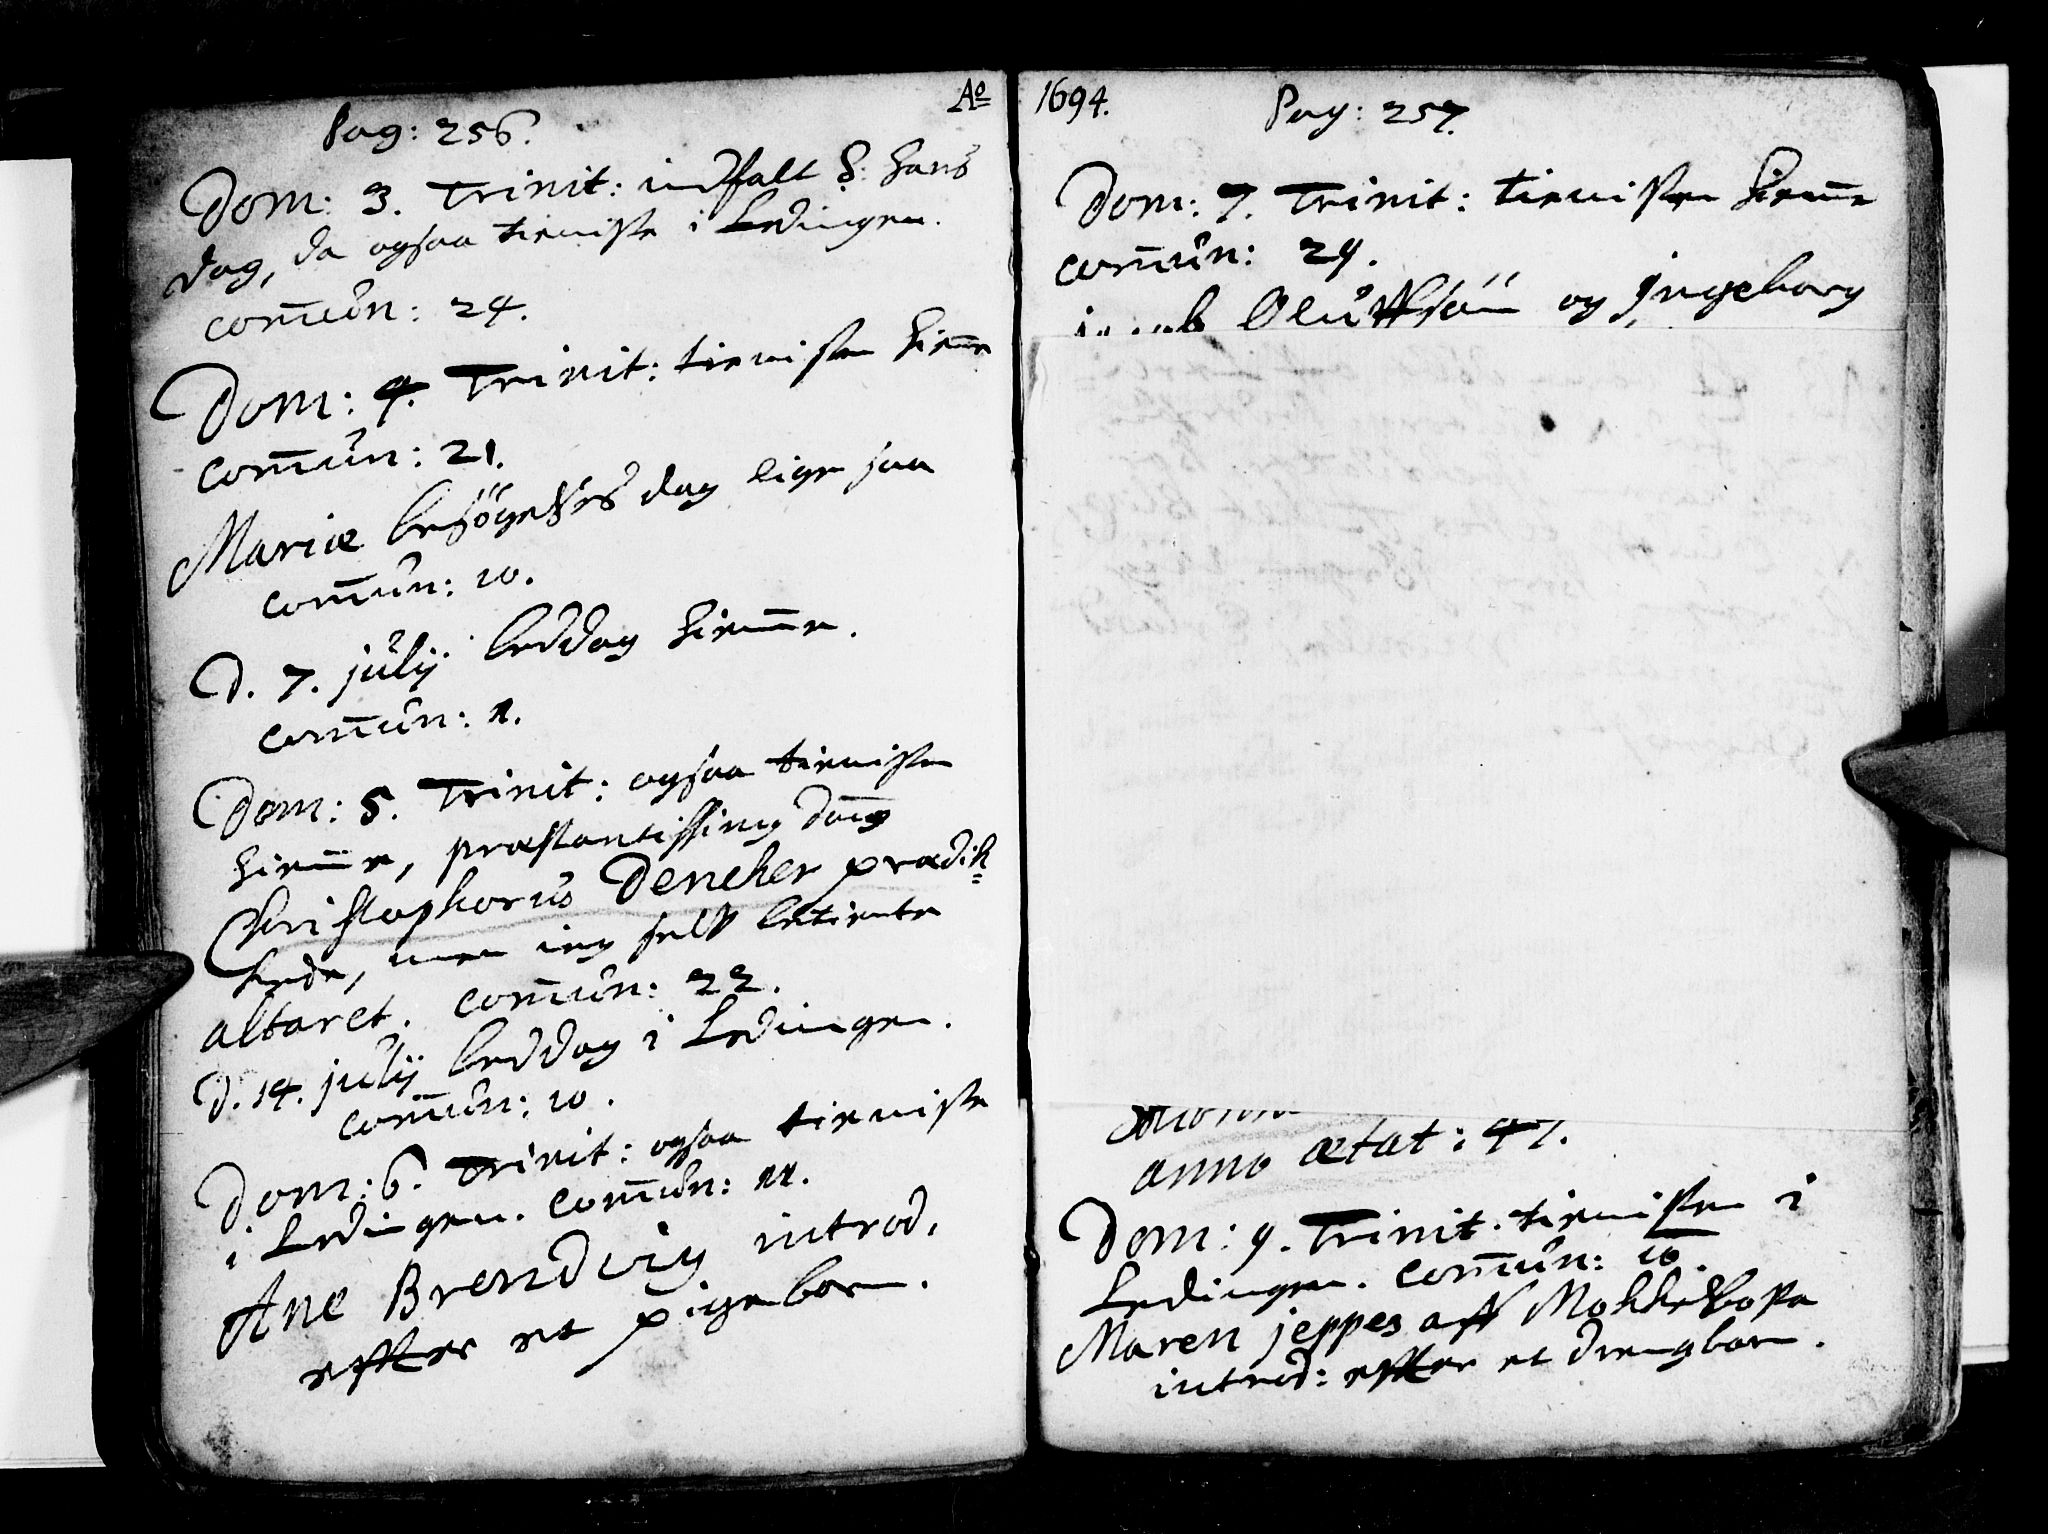 Pag: 256.
Aº
Dom: 3. Trinit: indfalt S: Hans
dag, da ogsaa tieniste i Lødingen.
com̅un: 24.
Dom: 4. Trinit: tienisten hiem̅e
com̅un: 21.
Mariæ besögelses dag lige saa
com̅un: 10.
D. 7. julij beddag hiem̅e.
com̅un: 1.
Dom: 5. Trinit: ogsaa tienisten
hiem̅e, præstantissimg
Christophorus Dencker prædik=
kede, men ieg selff betiente
altaret. com̅un: 22.
D. 14. julij beddag i Lødingen.
com̅un: 10.
Dom: 6. Trinit: ogsaa tieniste
i Lødingen. com̅un: 11.
Ane Brendvig introd.
effter et pigebarn.
1694.
Pag: 257.
Dom: 7. Trinit: tienisten hiem̅e
com̅un: 29.
Oluffsön og Jngeborg
anno ætat: 47.
Dom: 9. Trinit. tienisten i
Lødingen. com̅un: 10.
Maren jeppes aff
introd: effter et drengbarn.